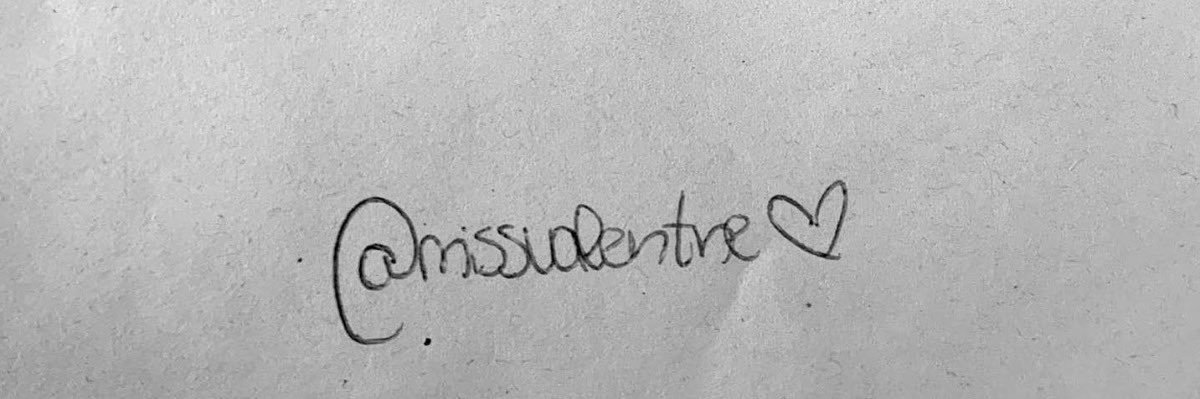 @missvalentine♡